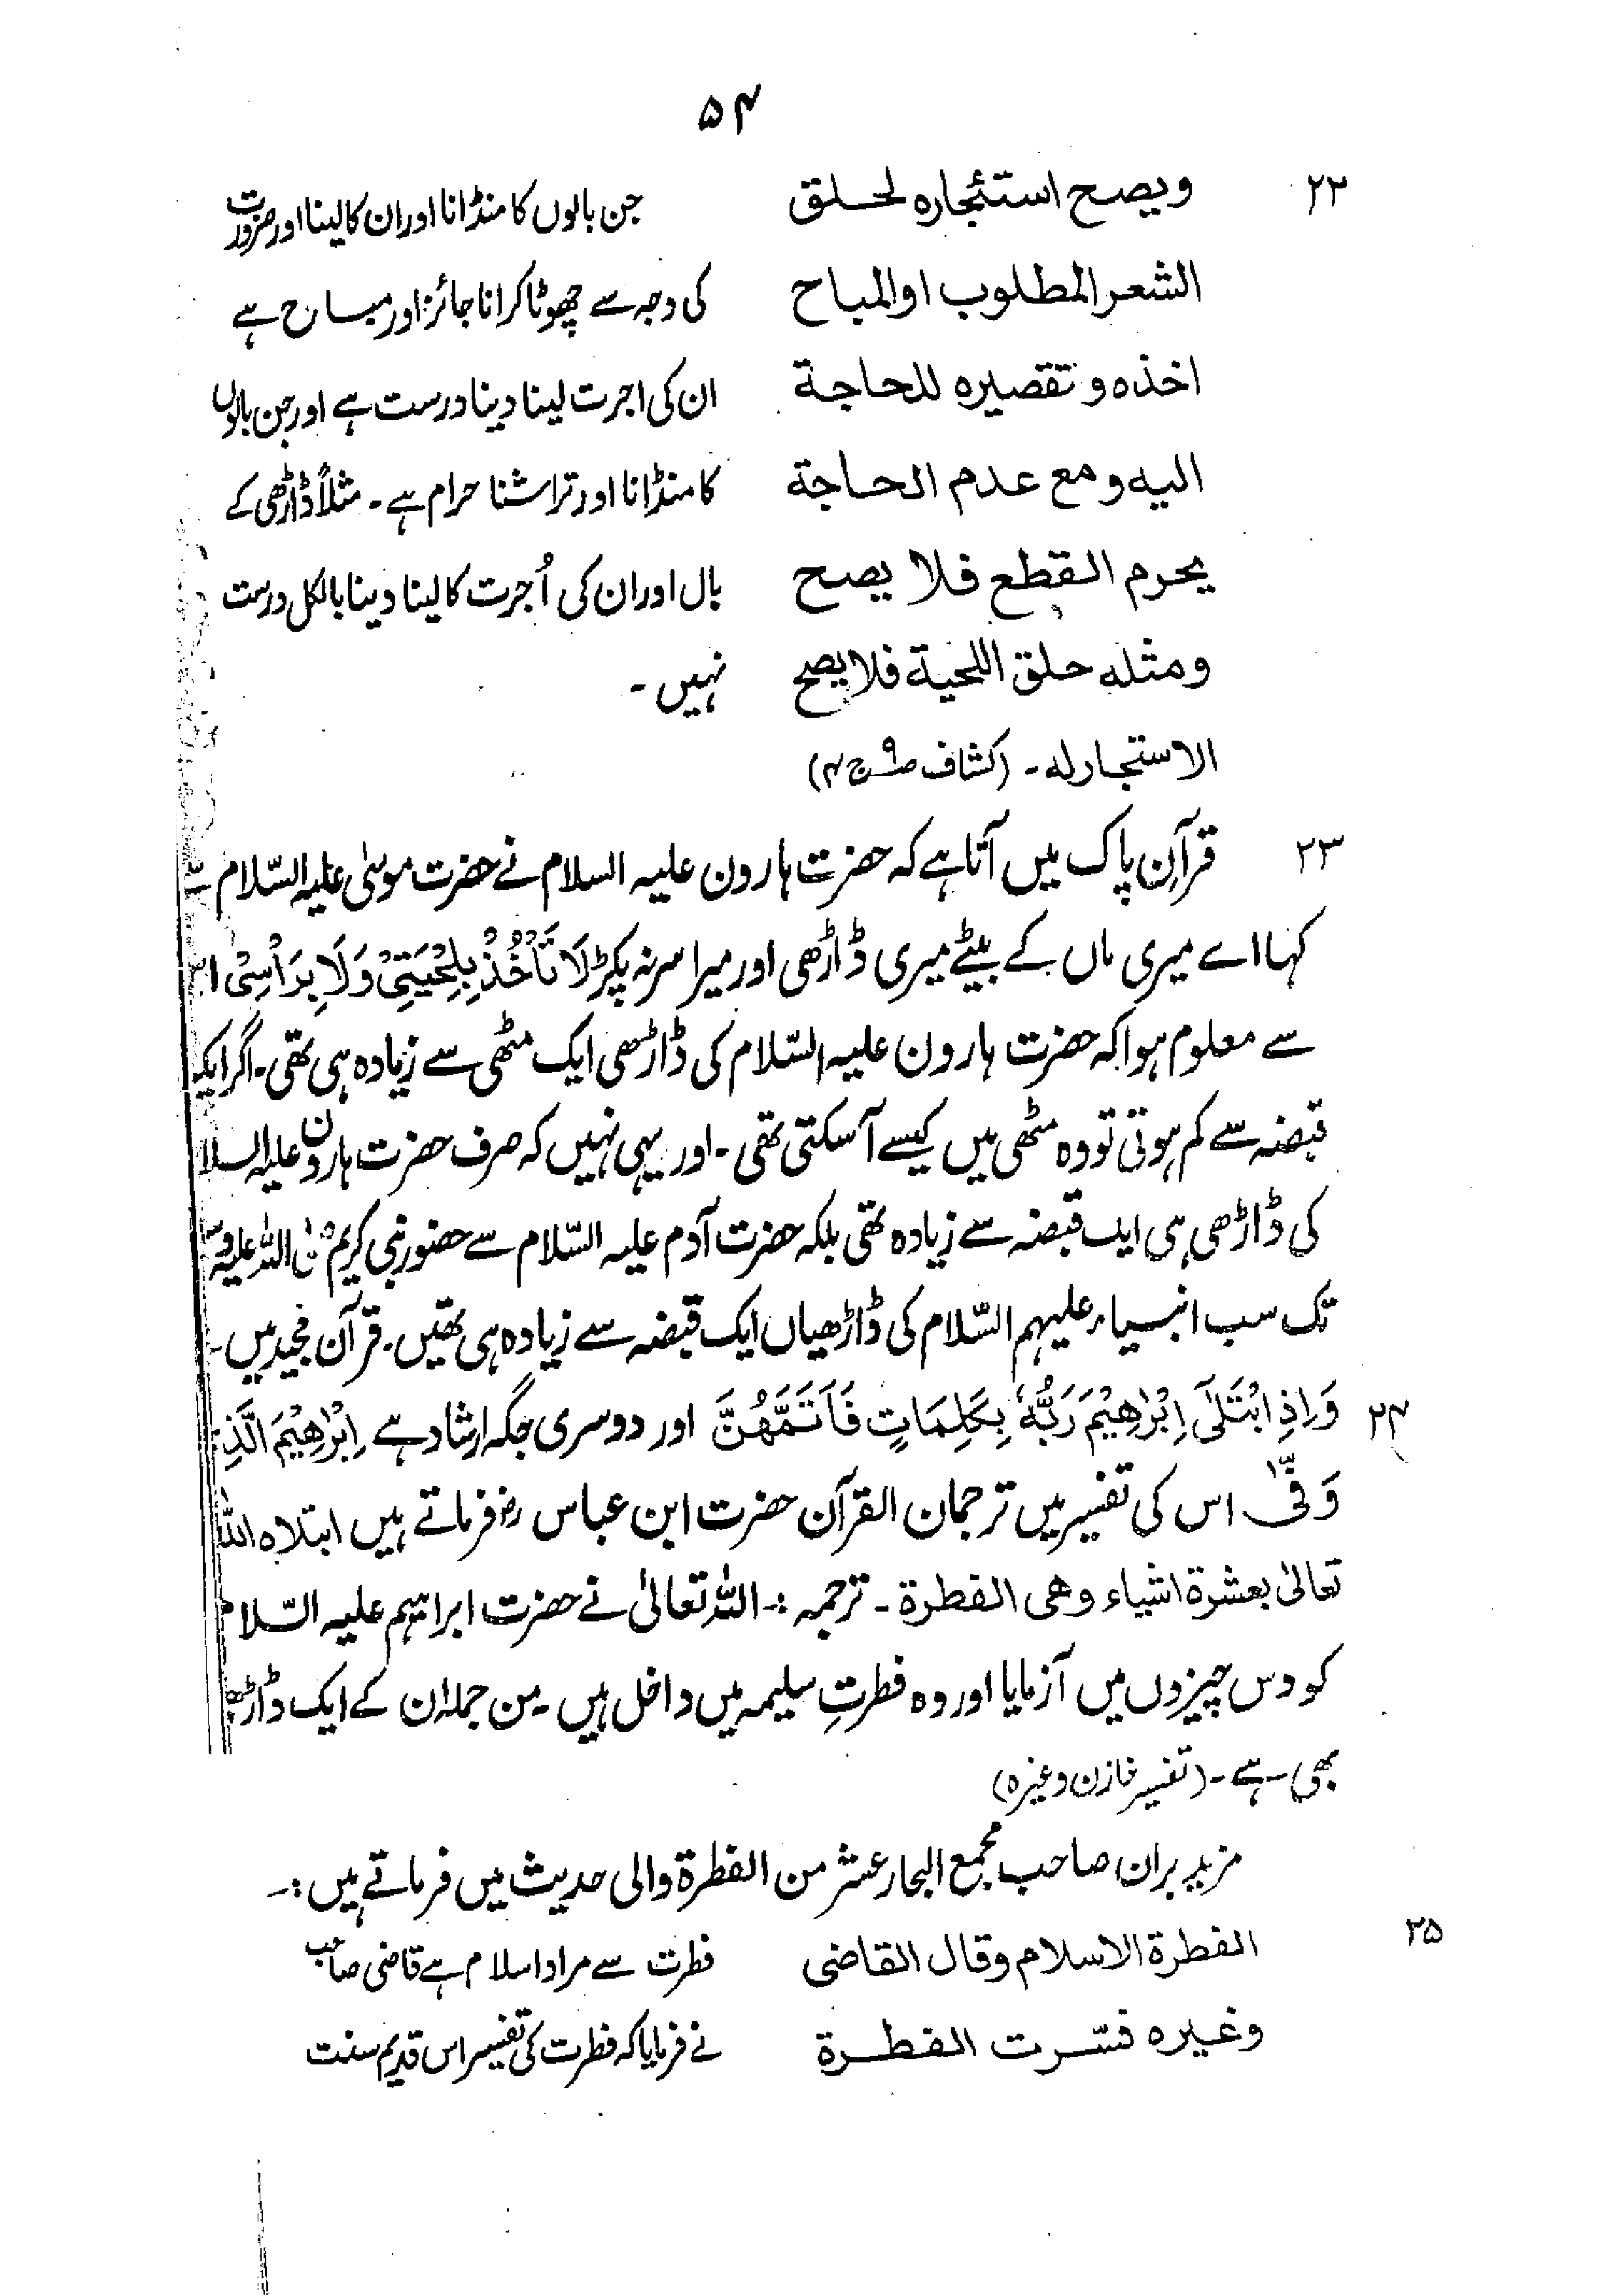 ۵۴
۲۲ ویصح استئجاره لحلق
الشعر المطلوب او المباح
اخذه و تقصیره للحاجة
الیه و مع عدم الحاجة
یحرم القطع فلا یصح
ومثله حلق اللحیة فلا یصح
الاستجار له ۔ (کشاف ص۹ ج۴)
جن بالوں کا منڈانا اور ان کا لینا اور ضرورت
کی وجہ سے چھوٹا کرانا جائز اور مباح ہے
ان کی اجرت لینا دینا درست ہے اور جن بالوں
کا منڈانا اور تراشنا حرام ہے ۔ مثلاً ڈاڑھی کے
بال اور ان کی اُجرت کا لینا دینا بالکل درست
نہیں ۔
۲۳ قرآنِ پاک میں آتا ہے کہ حضرت ہارون علیہ السلام نے حضرت موسیٰ علیہ السّلام سے
کہا اے میری ماں کے بیٹے میری ڈاڑھی اور میرا سر نہ پکڑ لَا تَأْخُذْ بِلِحْیَتِیْ وَلَا بِرَأْسِیْ
سے معلوم ہوا کہ حضرت ہارون علیہ السّلام کی ڈاڑھی ایک مٹھی سے زیادہ ہی تھی ۔ اگر ایک
قبضہ سے کم ہوتی تو وہ مٹھی میں کیسے آ سکتی تھی ۔ اور یہی نہیں کہ صرف حضرت ہارون علیہ السلا
کی ڈاڑھی ہی ایک قبضہ سے زیادہ تھی بلکہ حضرت آدم علیہ السّلام سے حضور نبی کریم صلی اللہ علیہ و
تک سب انبیاء علیہم السّلام کی ڈاڑھیاں ایک قبضہ سے زیادہ ہی تھیں ۔ قرآن مجید میں ۔
۲۴ وَاِذِ ابْتَلٰٓی اِبْرٰھِیْمَ رَبُّہٗ بِکَلِمَاتٍ فَاَتَمَّھُنَّ اور دوسری جگہ ارشاد ہے اِبْرٰھِیْمَ الَّذِ
وَفّٰی اس کی تفسیر میں ترجمان القرآن حضرت ابن عباس رض فرماتے ہیں ابتلاہ اللہ
تعالیٰ بعشرة اشیاء وھی الفطرة ۔ ترجمہ :۔ اللہ تعالیٰ نے حضرت ابراہیم علیہ السّلام
کو دس چیزوں میں آزمایا اور وہ فطرتِ سلیمہ میں داخل ہیں ۔ من جملہ ان کے ایک ڈاڑھ
بھی ہے ۔ (تفسیر خازن وغیرہ)
مزید براں صاحب مجمع البحار عشر من الفطرة والی حدیث میں فرماتے ہیں :۔
۲۵ الفطرة الاسلام وقال القاضی
وغیره فسّرت الفطرة
فطرت سے مراد اسلام ہے قاضی صاحب
نے فرمایا کہ فطرت کی تفسیر اس قدیم سنت